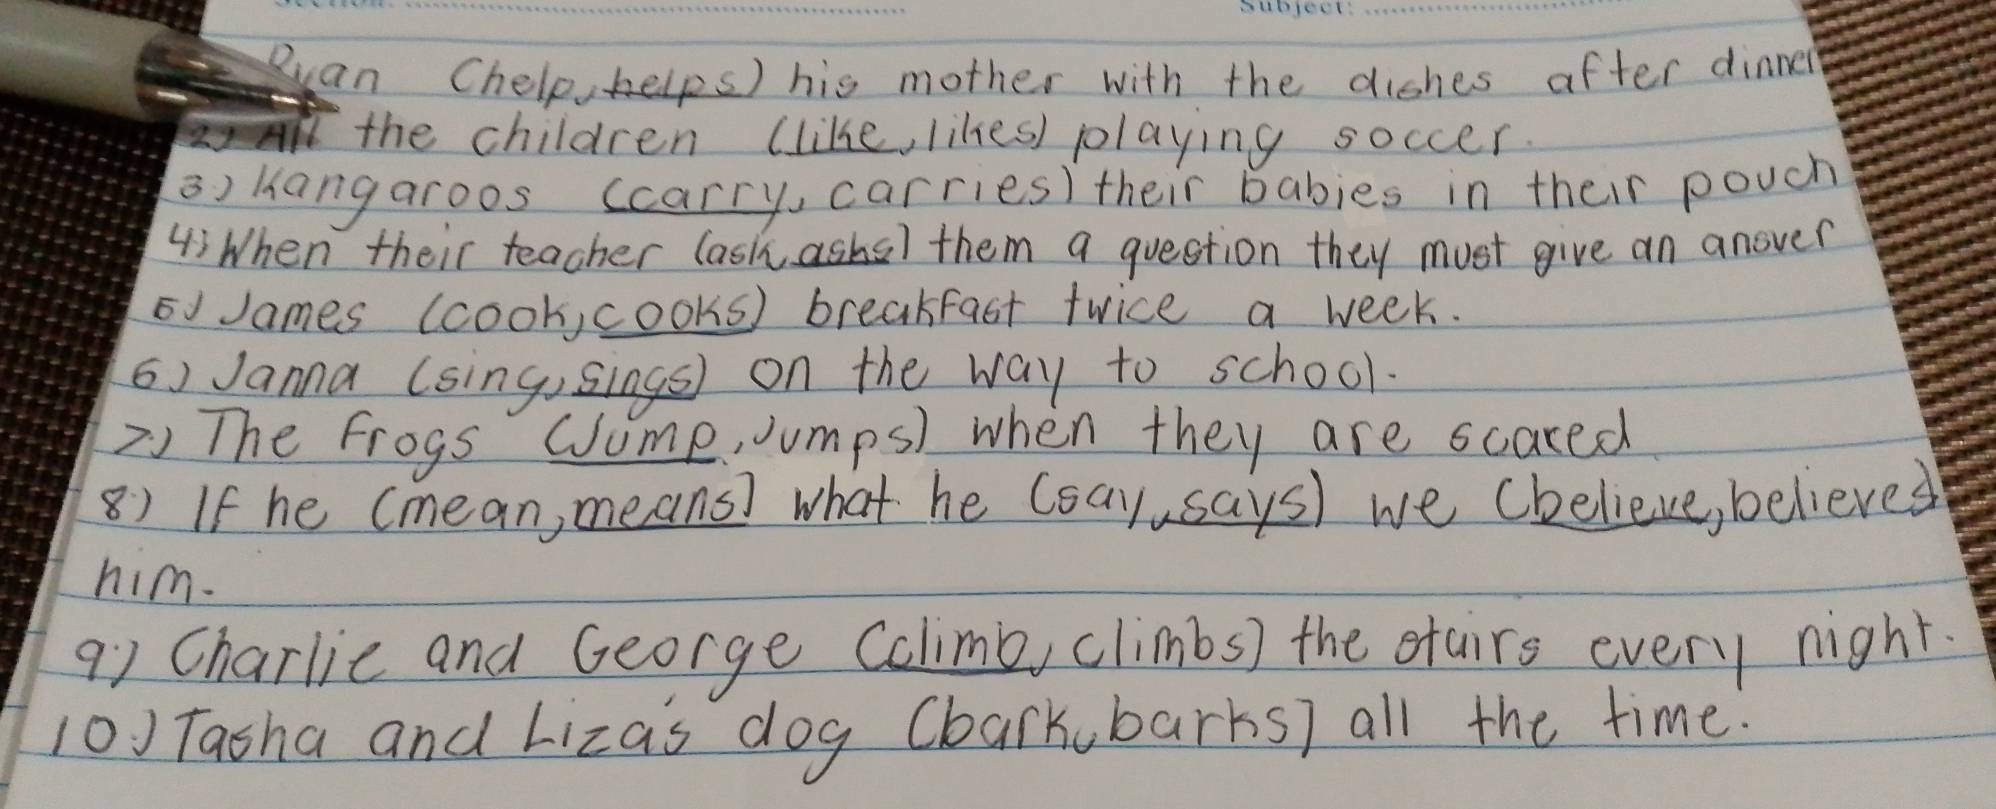 Subject:
Ryan (help, helps) his mother with the dishes after dinner
2) All the children (like, likes) playing soccer.
3) Kangaroos (carry, carries) their babies in their pouch
4) When their teacher (ask, asks) them a question they must give an answer
5) James (cook, cooks) breakfast twice a week.
6) Janna (sing, sings) on the way to school.
7.) The Frogs (Jump, Jumps) when they are scared
8.) If he (mean, means) what he (say, says) we (believe, believes)
him.
9.) Charlie and George (climb, climbs) the stairs every night.
10.) Tasha and Liza's dog (bark, barks) all the time.